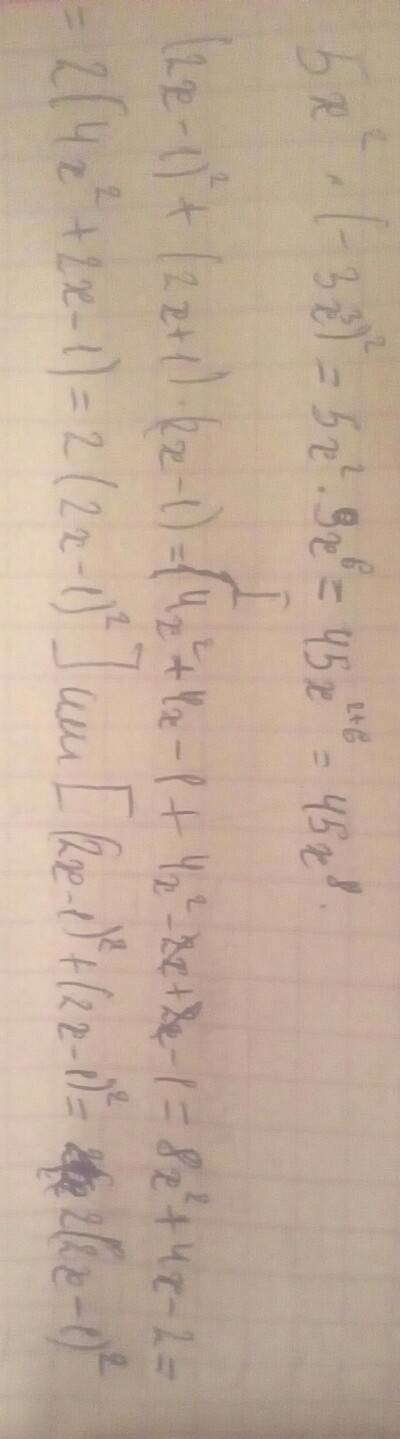 5x² · (-3x³)² = 5x² · 9x⁶ = 45x²⁺⁶ = 45x⁸.
(2x-1)² + (2x+1)·(2x-1) = [4x² + 4x - 1 + 4x² - 2x + 2x - 1 = 8x² + 4x - 2 =
= 2(4x² + 2x - 1) = 2(2x-1)²] или [(2x-1)² + (2x-1)² = 2(2x-1)²